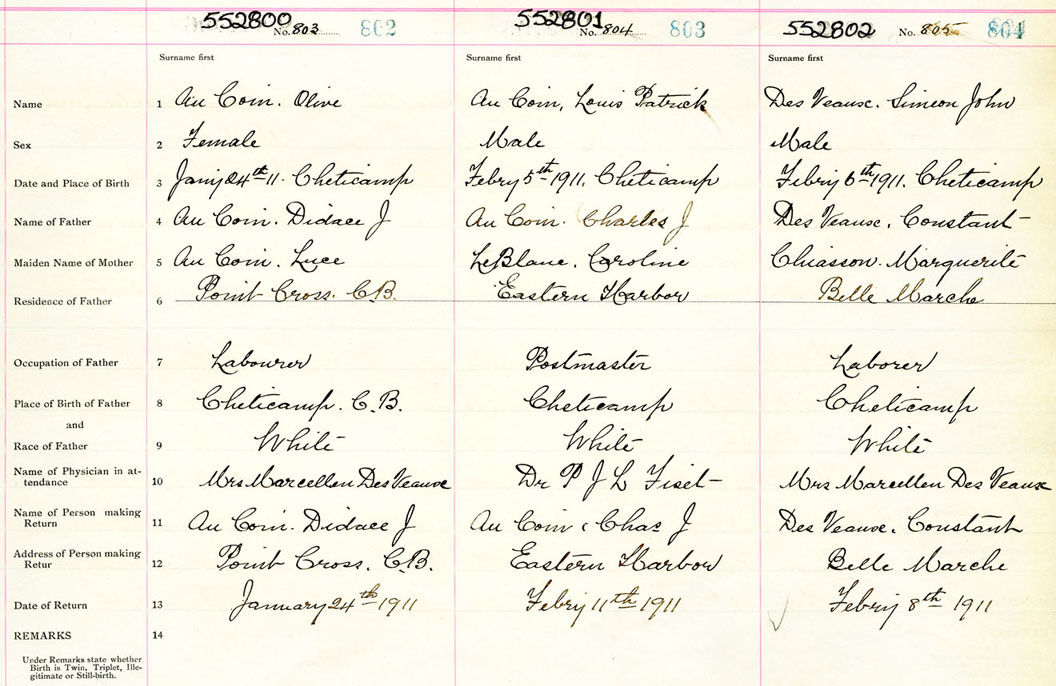 552800 No. 803 802 552801 No. 804 803 552802 No. 805 804
Surname first Surname first Surname first
Name 1 Au Coin. Olive Au Coin, Louis Patrick Des Veaux. Simeon John
Sex 2 Female Male Male
Date and Place of Birth 3 Jany 24th 11. Cheticamp Febry 5th 1911. Cheticamp Febry 6th 1911. Cheticamp
Name of Father 4 Au Coin. Didace J Au Coin. Charles J Des Veaux. Constant
Maiden Name of Mother 5 Au Coin. Luce LeBlanc. Caroline Chiasson. Marguerite
Residence of Father 6 Point Cross. C.B. Eastern Harbor Belle Marche
Occupation of Father 7 Labourer Postmaster Laborer
Place of Birth of Father 8 Cheticamp. C.B. Cheticamp Cheticamp
and
Race of Father 9 White White White
Name of Physician in at-
tendance 10 Mrs Marcellen Des Veaux Dr P J L Fiset Mrs Marcellen Des Veaux
Name of Person making
Return 11 Au Coin. Didace J Au Coin, Chas J Des Veaux. Constant
Address of Person making
Retur 12 Point Cross. C.B. Eastern Harbor Belle Marche
Date of Return 13 January 24th 1911 Febry 11th 1911 Febry 8th 1911
REMARKS 14
Under Remarks state whether
Birth is Twin, Triplet, Ille-
gitimate or Still-birth.